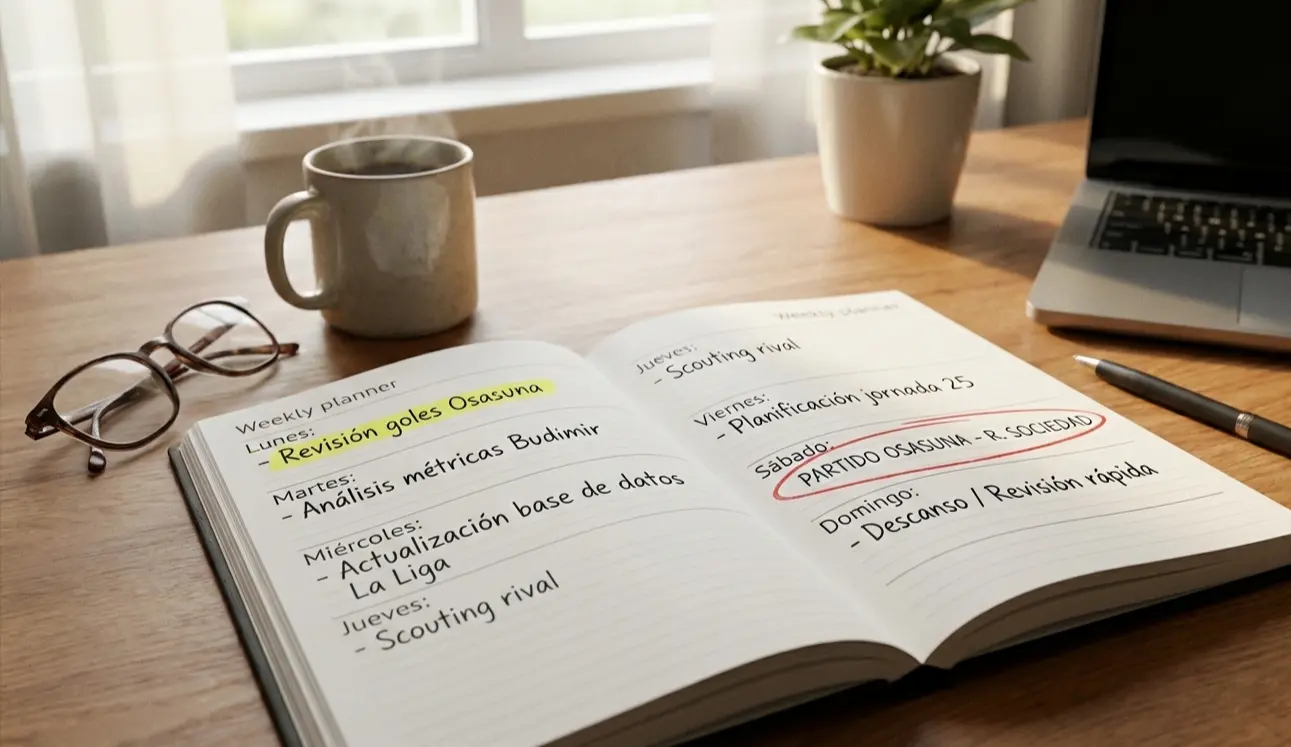 Weekly planner
Lunes:
- Revisión goles Osasuna
Martes:
- Análisis métricas Budimir
Miércoles:
- Actualización base de datos
La Liga
Jueves:
- Scouting rival
Weekly planner
Jueves:
- Scouting rival
Viernes:
- Planificación jornada 25
Sábado:
PARTIDO OSASUNA - R. SOCIEDAD
Domingo:
- Descanso / Revisión rápida